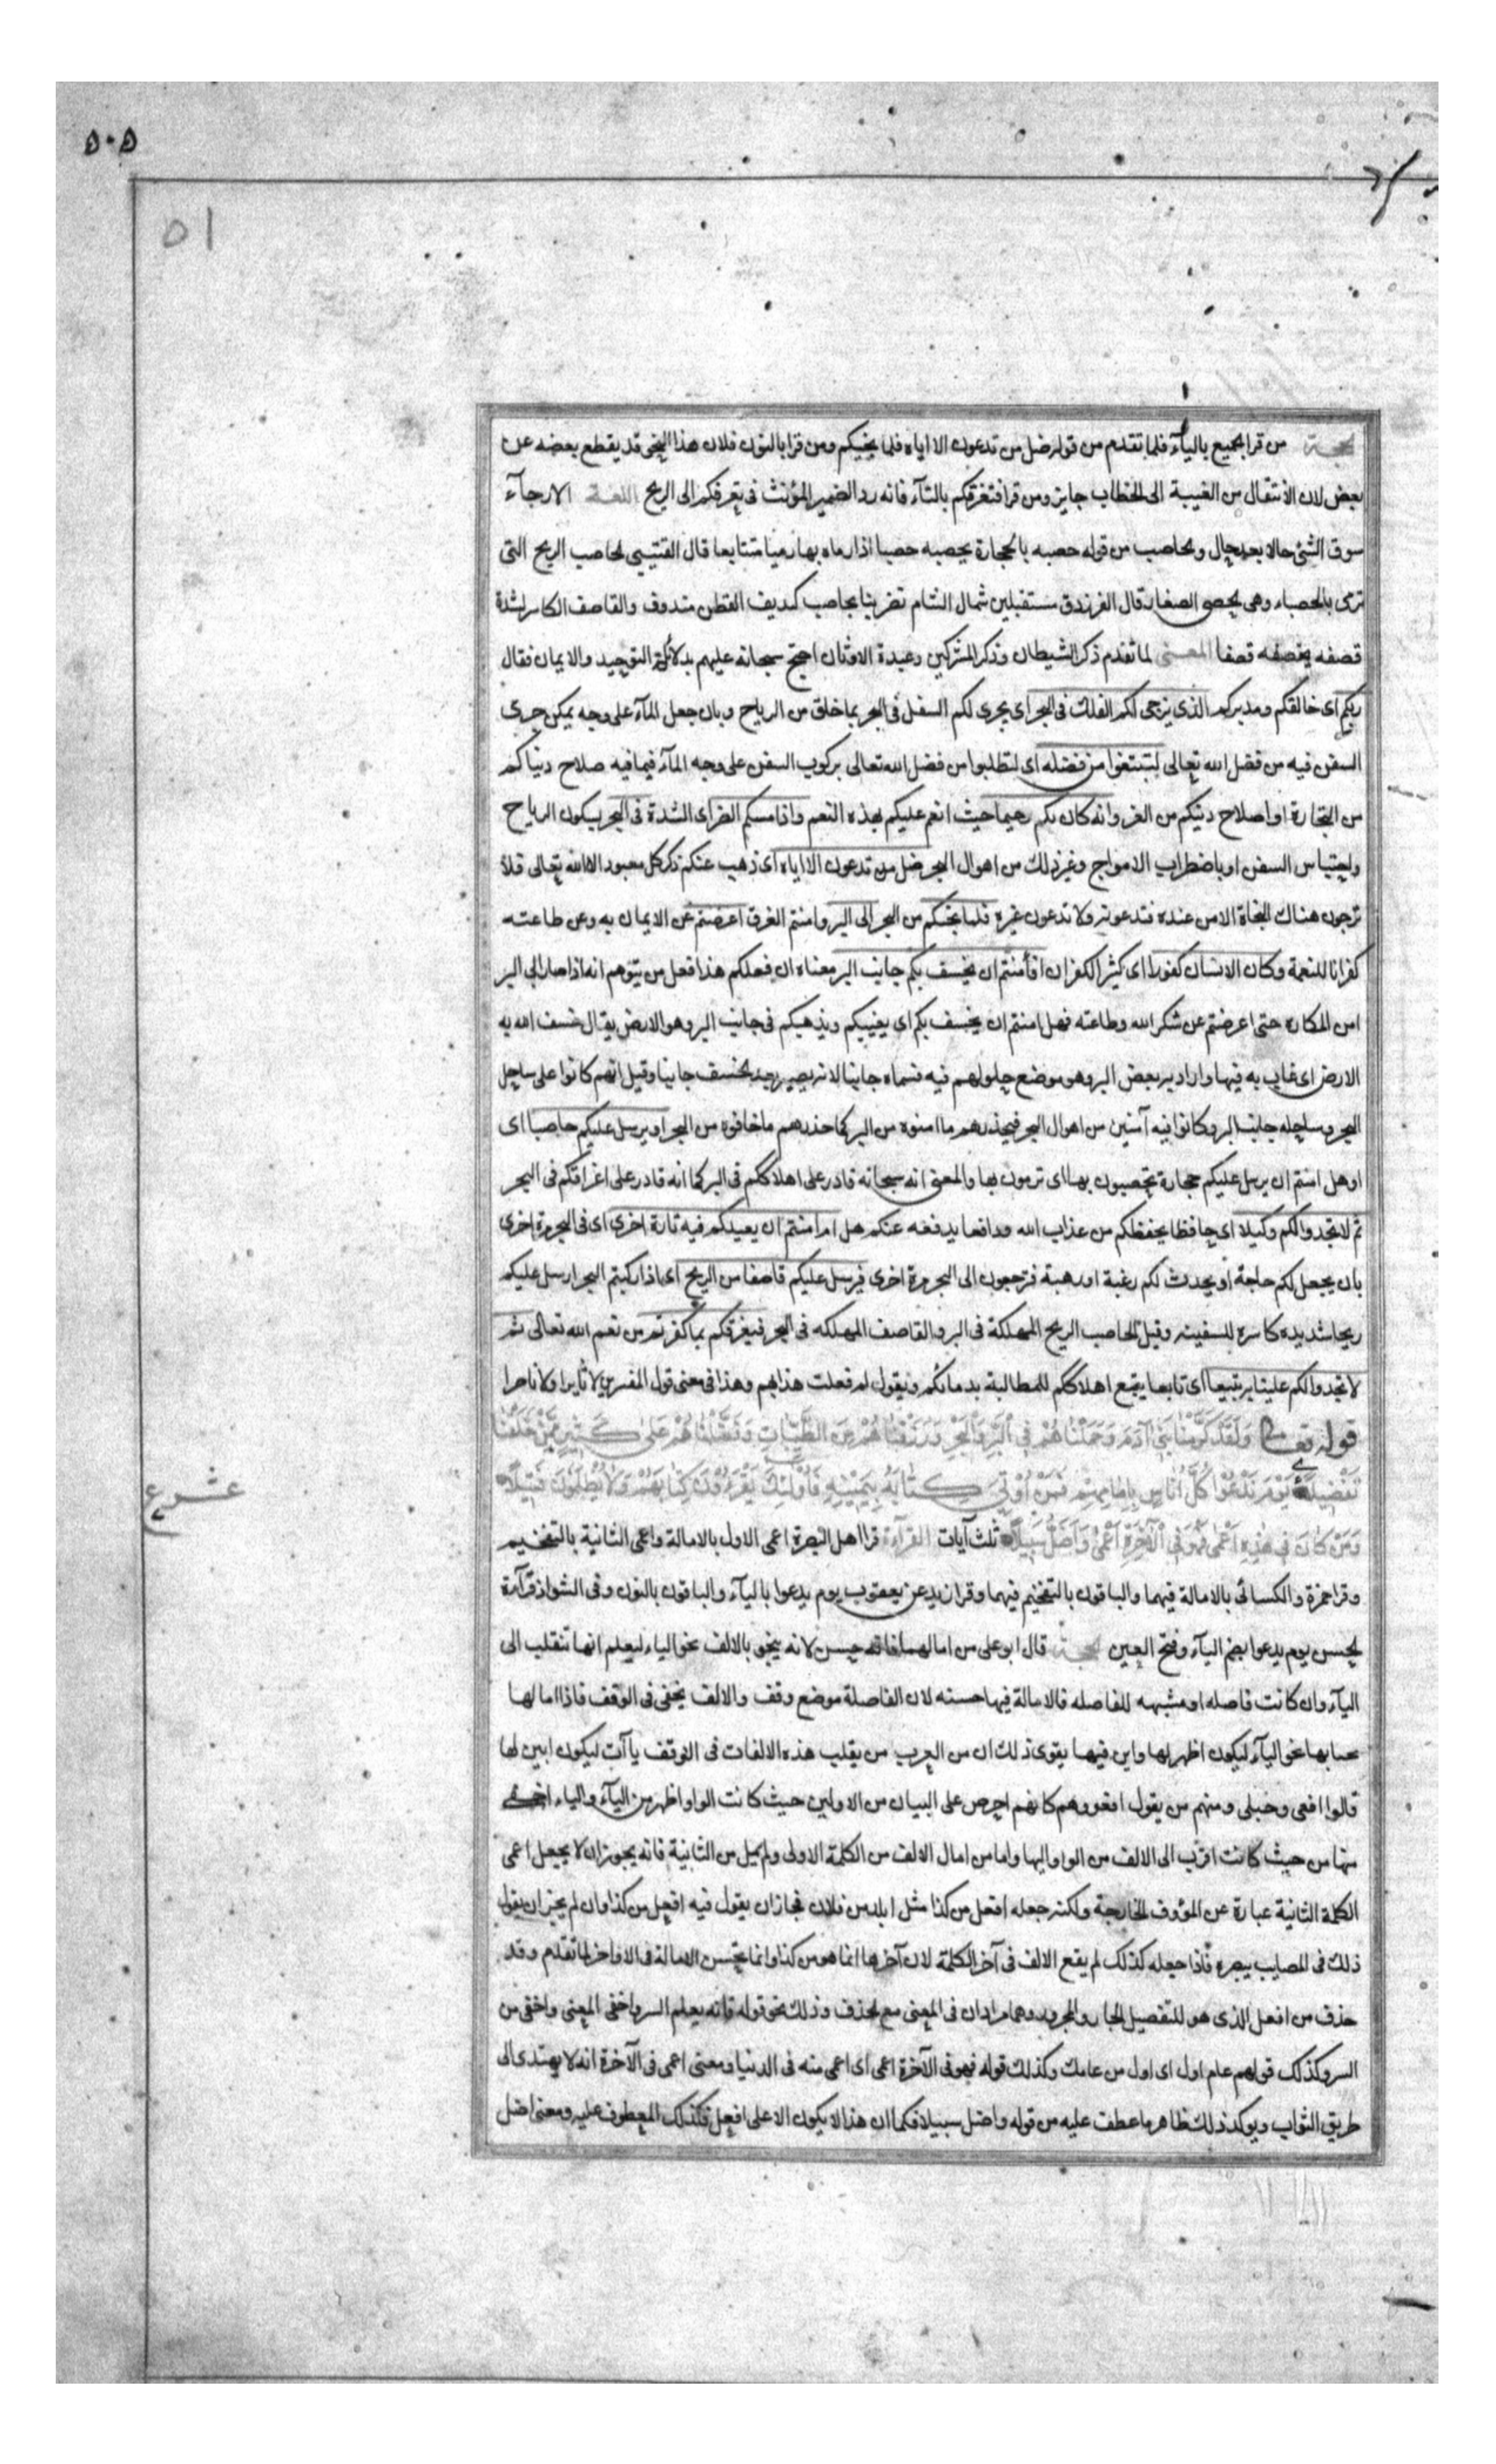 ۵۰۵
۵۱
الحجة من قرا الجميع باليآء فلما تقدم من قوله ضل من تدعون الا اياه فلما نجيكم ومن قرا بالنون فلان هذا النحو قد يقطع بعضه عن
بعض لان الانتقال من الغيبة الى الخطاب جايز ومن قرا فتغرقكم بالتآء فانه رد الضمير المؤنث فى تغرقكم الى الريح اللغة الارجآء
سوق الشئ حالا بعد حال والحاصب من قوله حصبه بالحجارة يحصبه حصبا اذا رماه بها رميا متتابعا قال القتيبى الحاصب الريح التى
ترمى بالحصباء وهى الحصى الصغار قال الفرزدق مستقبلين شمال الشام تضربنا بحاصب كنديف القطن مندوف والقاصف الكاسر لشدة
قصفه يقصفه قصفا المعنى لما تقدم ذكر الشيطان وذكر المشركين وعبدة الاوثان احتج سبحانه عليهم بدلائل التوحيد والايمان فقال
ربكم اى خالقكم ومدبركم الذى يزجى لكم الفلك فى البحر اى يجرى لكم السفن فى البحر بما خلق من الرياح وبان جعل المآء على وجه يمكن جرى
السفن فيه من فضل الله تعالى لتبتغوا من فضله اى لتطلبوا من فضل الله تعالى بركوب السفن على وجه المآء فيما فيه صلاح دنياكم
من التجارة او اصلاح دينكم من الغزو انه كان بكم رحيما حيث انعم عليكم بهذه النعم واذا مسكم الضر اى الشدة فى البحر بسكون الرياح
واحتباس السفن او باضطراب الامواج وغير ذلك من اهوال البحر ضل من تدعون الا اياه اى ذهب عنكم ذكر كل معبود الا الله تعالى فلا
ترجون هناك النجاة الا من عنده فتدعونه ولا تدعون غيره فلما نجيكم من البحر الى البر وامنتم الغرق اعرضتم عن الايمان به وعن طاعته
كفرانا للنعمة وكان الانسان كفورا اى كثير الكفران افأمنتم ان يخسف بكم جانب البر معناه ان فعلكم هذا فعل من يتوهم انه اذا صار الى البر
امن المكاره حتى اعرضتم عن شكر الله وطاعته فهل امنتم ان يخسف بكم اى يغيبكم ويذهبكم فى جانب البر وهو الارض يقال خسف الله به
الارض اى غاب به فيها واراد به بعض البر وهو موضع حلولهم فيه فسماه جانبا لانه يصير بعد الخسف جانبا وقيل انهم كانوا على ساحل
البحر وساحله جانب البر وكانوا فيه آمنين من اهوال البحر فحذرهم ما امنوه من البر كما حذرهم ما خافوه من البحر او يرسل عليكم حاصبا اى
او هل امنتم ان يرسل عليكم حجارة تحصبون بها اى ترمون بها والمعنى انه سبحانه قادر على اهلاككم فى البر كما انه قادر على اغراقكم فى البحر
ثم لا تجدوا لكم وكيلا اى حافظا يحفظكم من عذاب الله ودافعا يدفعه عنكم هل ام امنتم ان يعيدكم فيه تارة اخرى اى فى البحر مرة اخرى
بان يجعل لكم حاجة او يحدث لكم رغبة او رهبة فترجعون الى البحر مرة اخرى فيرسل عليكم قاصفا من الريح اى اذا ركبتم البحر ارسل عليكم
ريحا شديده كاسره للسفينه وقيل الحاصب الريح المهلكة فى البر والقاصف المهلكه فى البحر فيغرقكم بما كفرتم من نعم الله تعالى ثم
لا تجدوا لكم علينا به تبيعا اى تابعا يتبع اهلاككم للمطالبة بدمائكم ويقول لم فعلت هذا بهم وهذا فى معنى قول المفسرين لا ثايرا ولا ناصرا
قوله تعالى وَلَقَدْ كَرَّمْنَا بَنِى آدَمَ وَحَمَلْنَاهُمْ فِى الْبَرِّ وَالْبَحْرِ وَرَزَقْنَاهُمْ مِنَ الطَّيِّبَاتِ وَفَضَّلْنَاهُمْ عَلَى كَثِيرٍ مِمَّنْ خَلَقْنَا
تَفْضِيلًا يَوْمَ نَدْعُوا كُلَّ اُنَاسٍ بِاِمَامِهِمْ فَمَنْ اُوتِىَ كِتَابَهُ بِيَمِينِهِ فَاُولَئِكَ يَقْرَءُونَ كِتَابَهُمْ وَلَا يُظْلَمُونَ فَتِيلًا
عشر ع
وَمَنْ كَانَ فِى هَذِهِ اَعْمَى فَهُوَ فِى الْآخِرَةِ اَعْمَى وَاَضَلُّ سَبِيلًا ثلث آيات القرآءة قرا اهل البصرة اعمى الاول بالامالة واعمى الثانية بالتفخيم
وقرا حمزة والكسائى بالامالة فيهما والباقون بالتفخيم فيهما وقرا زيد عن يعقوب يوم يدعوا باليآء والباقون بالنون وفى الشواذ قرآءة
الحسن يوم يدعوا بضم اليآء وفتح العين الحجة قال ابو على من امالهما فانه حسن لانه ينحو بالالف نحو الياء ليعلم انها تنقلب الى
اليآء وان كانت فاصله او مشبهه للفاصله فالامالة فيها حسنه لان الفاصلة موضع وقف والالف يخفى فى الوقف فاذا امالها
نحا بها نحو اليآء ليكون اظهر لها وابن فيها يقوى ذلك ان من العرب من يقلب هذه الالفات فى الوقف ياآت ليكون ابين لها
قالوا افعى وحبلى ومنهم من يقول افعو وهم كانهم احرص على البيان من الاولين حيث كانت الواو اظهر من اليآء والياء اخفى
منها من حيث كانت اقرب الى الالف من الواو اليها واما من امال الالف من الكلمة الاولى ولم يمل من الثانية فانه يجوز ان لا يجعل اعمى
الكلمة الثانية عبارة عن المؤوف الجارحة ولكنه جعله افعل من كذا مثل ابلد من فلان فجاز ان يقول فيه افعل من كذا وان لم يجز ان يقول
ذلك فى المصاب ببصره فاذا جعله كذلك لم يقع الالف فى آخر الكلمة لان آخرها انما هو من كذا وانما تحسن الامالة فى الاواخر لما تقدم وقد
حذف من افعل الذى هو للتفضيل الجار والمجرور وهما مرادان فى المعنى مع الحذف وذلك نحو قوله فانه يعلم السر واخفى المعنى واخفى من
السر وكذلك قولهم عام اول اى اول من عامك وكذلك قوله فهو فى الآخرة اعمى اى اعمى منه فى الدنيا ومعنى اعمى فى الآخرة انه لا يهتدى الى
طريق الثواب ويوكد ذلك ظاهر ما عطف عليه من قوله واضل سبيلا فكما ان هذا لا يكون الا على افعل فكذلك المعطوف عليه ومعنى اضل